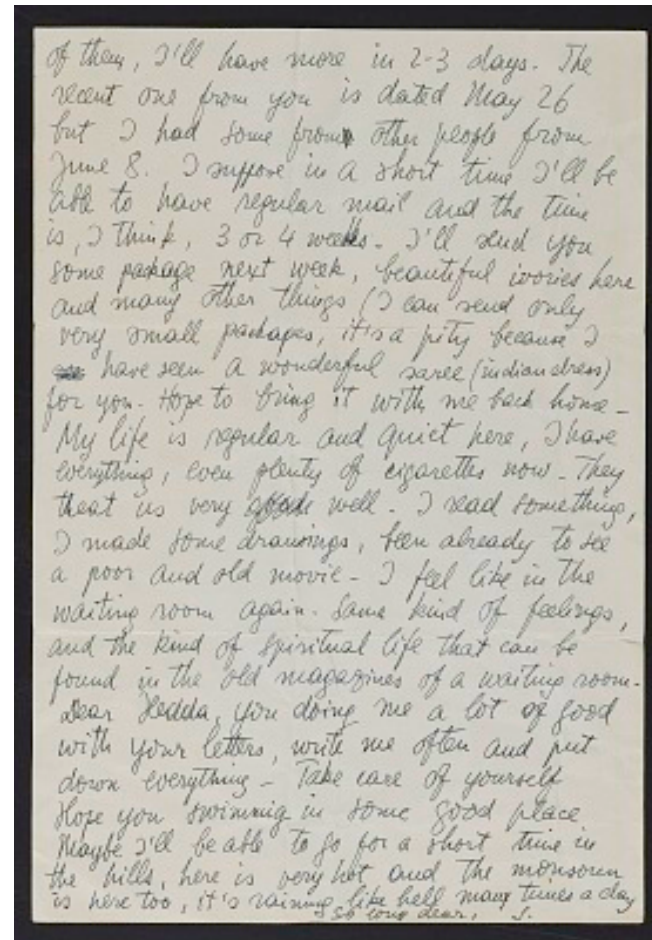 of them, I'll have more in 2-3 days. The
recent one from you is dated May 26
but I had some from other people from
June 8. I suppose in a short time I'll be
able to have regular mail and the time
is, I think, 3 or 4 weeks. I'll send you
some package next week, beautiful ivories here
and many other things (I can send only
very small packages, it's a pity because I
have seen a wonderful saree (indian dress)
for you. Hope to bring it with me back home -
My life is regular and quiet here, I have
everything, even plenty of cigarettes now - They
treat us very well - I read something,
I made some drawings, been already to see
a poor and old movie - I feel like in the
waiting room again. Same kind of feelings,
and the kind of spiritual life that can be
found in the old magazines of a waiting room -
Dear Hedda, you doing me a lot of good
with your letters, write me often and put
down everything - Take care of yourself
Hope you swimming in some good place
Maybe I'll be able to go for a short time in
the hills, here is very hot and the monsoun
is here too, it's raining like hell many times a day
so long dear, S.